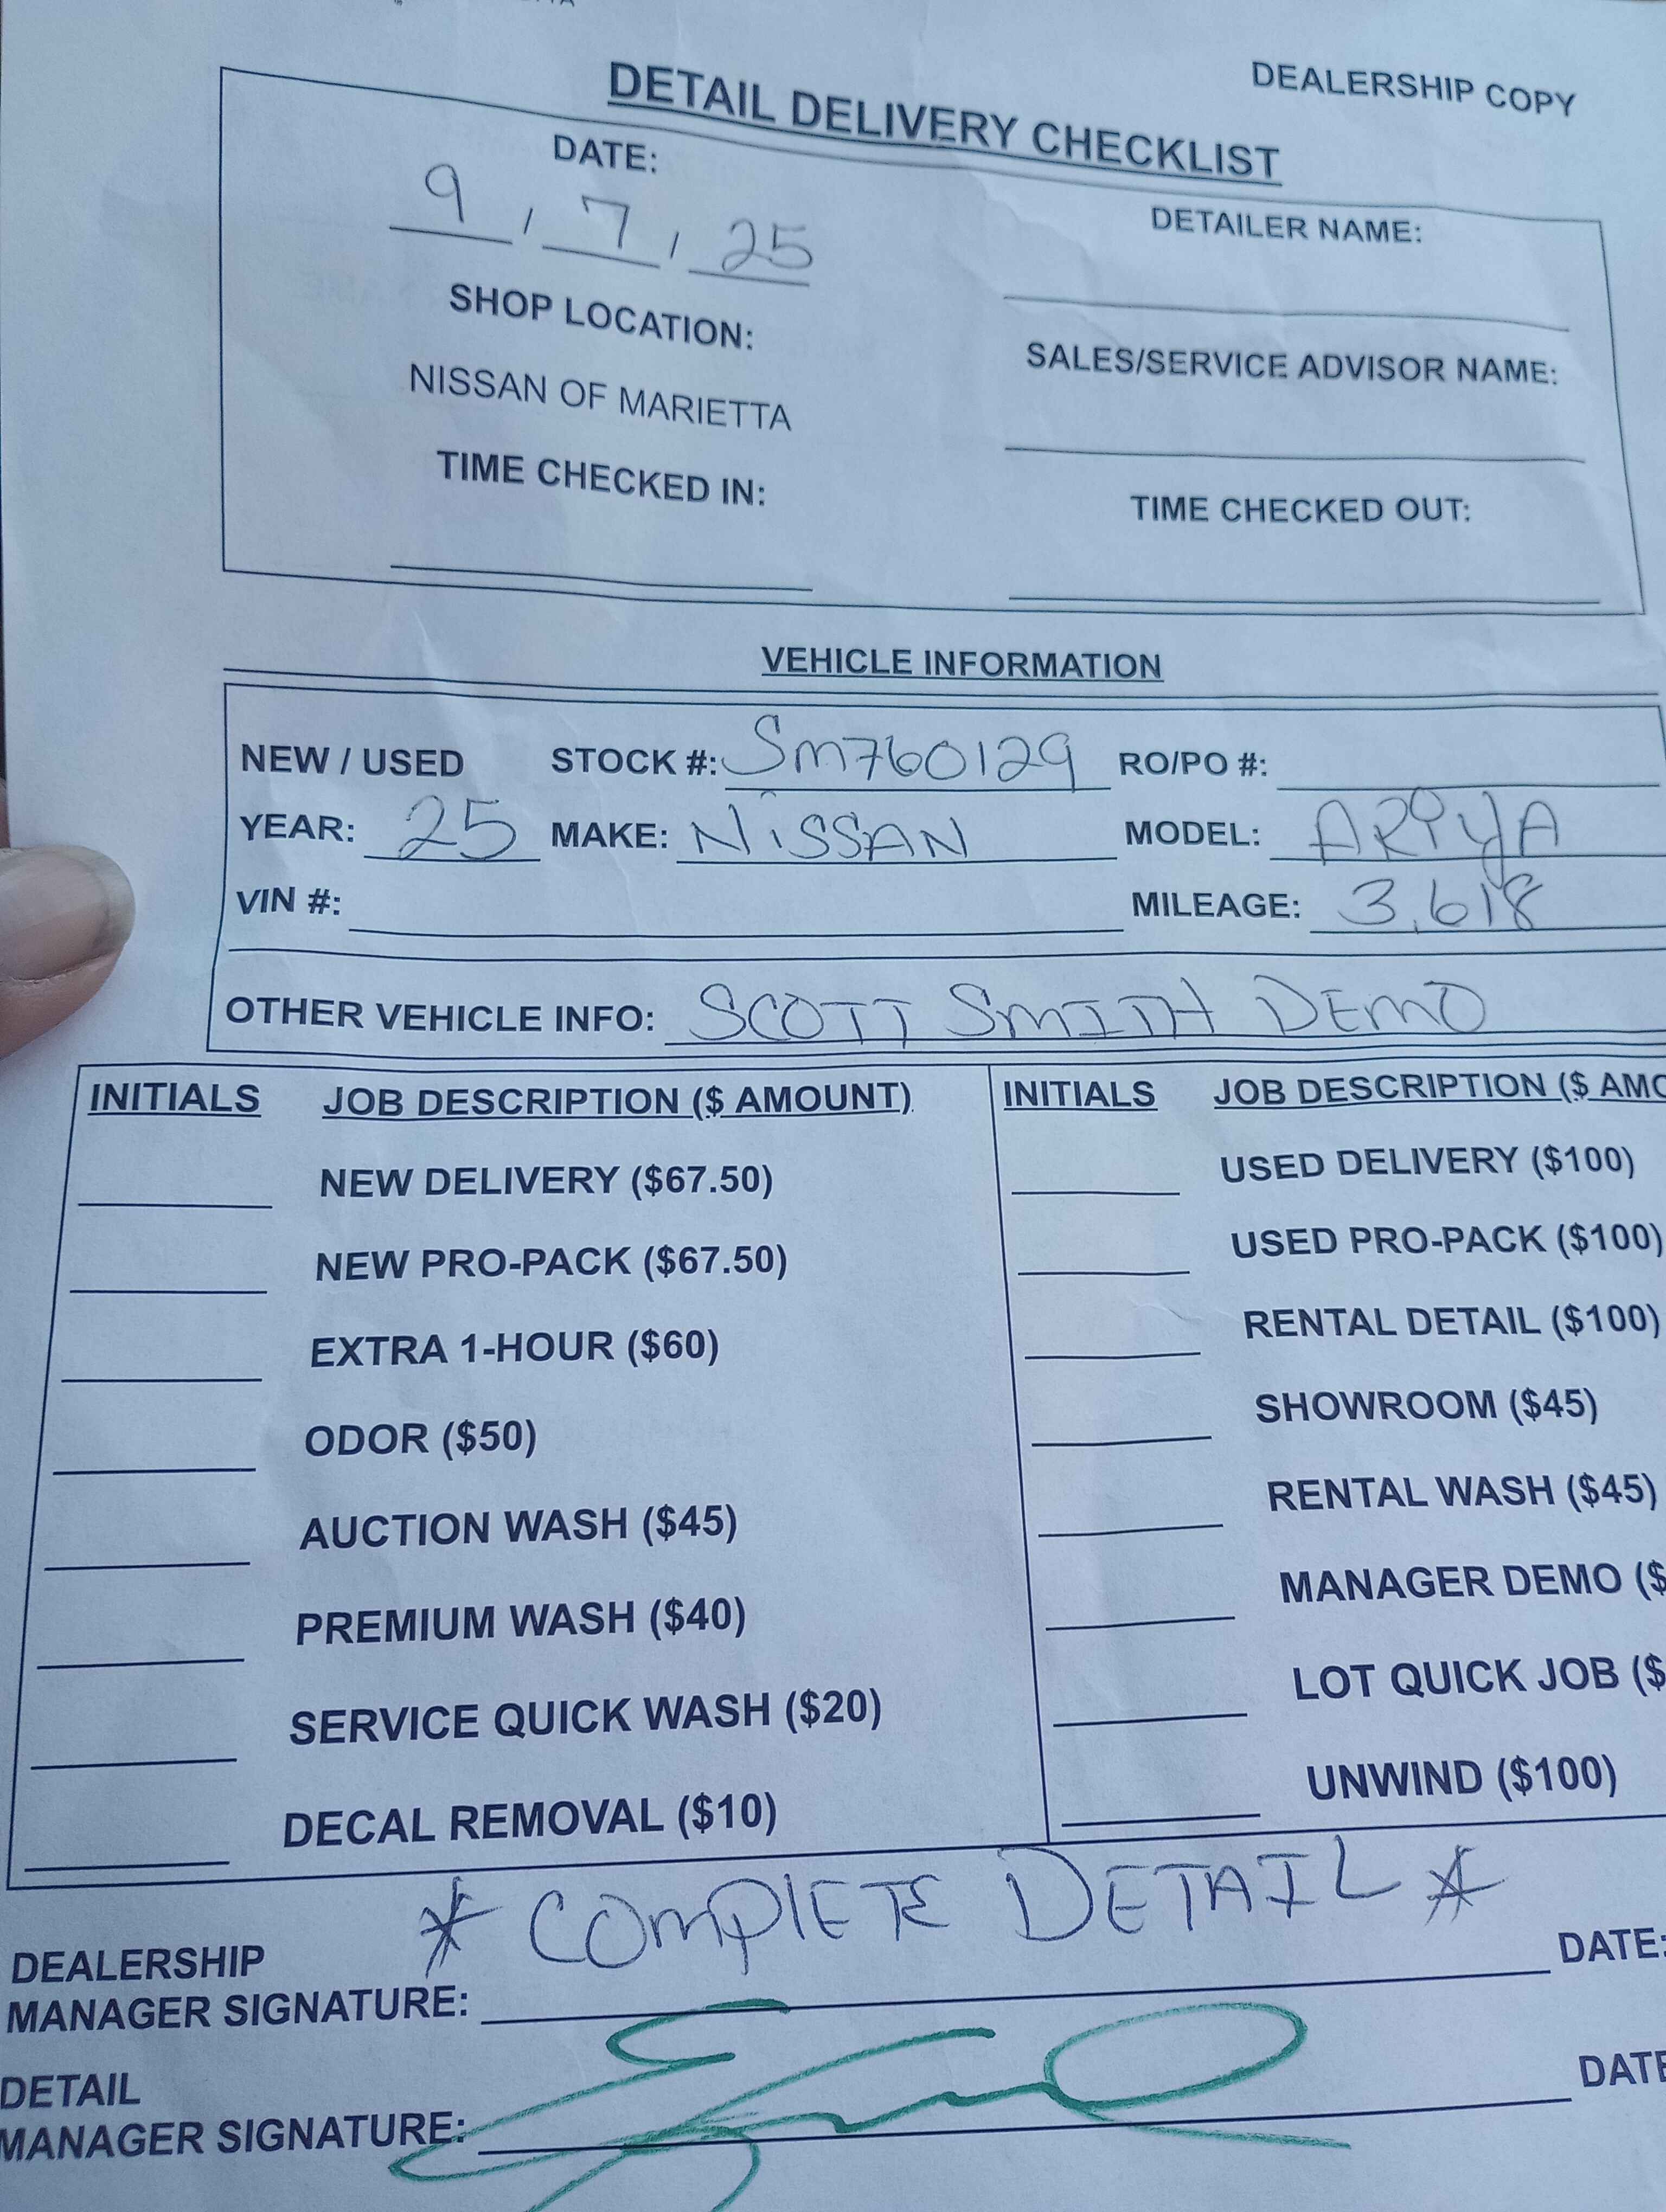 DEALERSHIP COPY
DETAIL DELIVERY CHECKLIST
DATE:
9 / 7 / 25
DETAILER NAME:
SHOP LOCATION:
NISSAN OF MARIETTA
SALES/SERVICE ADVISOR NAME:
TIME CHECKED IN:
TIME CHECKED OUT:
VEHICLE INFORMATION
NEW / USED STOCK #: Sm760129 RO/PO #:
YEAR: 25 MAKE: NiSSAN MODEL: ARiyA
VIN #: MILEAGE: 3,618
OTHER VEHICLE INFO: SCOTT SMITH DEMO
INITIALS JOB DESCRIPTION ($ AMOUNT) INITIALS JOB DESCRIPTION ($ AMO
NEW DELIVERY ($67.50) USED DELIVERY ($100)
NEW PRO-PACK ($67.50) USED PRO-PACK ($100)
EXTRA 1-HOUR ($60) RENTAL DETAIL ($100)
ODOR ($50) SHOWROOM ($45)
AUCTION WASH ($45) RENTAL WASH ($45)
PREMIUM WASH ($40) MANAGER DEMO ($
SERVICE QUICK WASH ($20) LOT QUICK JOB ($
DECAL REMOVAL ($10) UNWIND ($100)
* COMPLETE DETAIL *
DEALERSHIP
MANAGER SIGNATURE: DATE:
DETAIL
MANAGER SIGNATURE: DATE